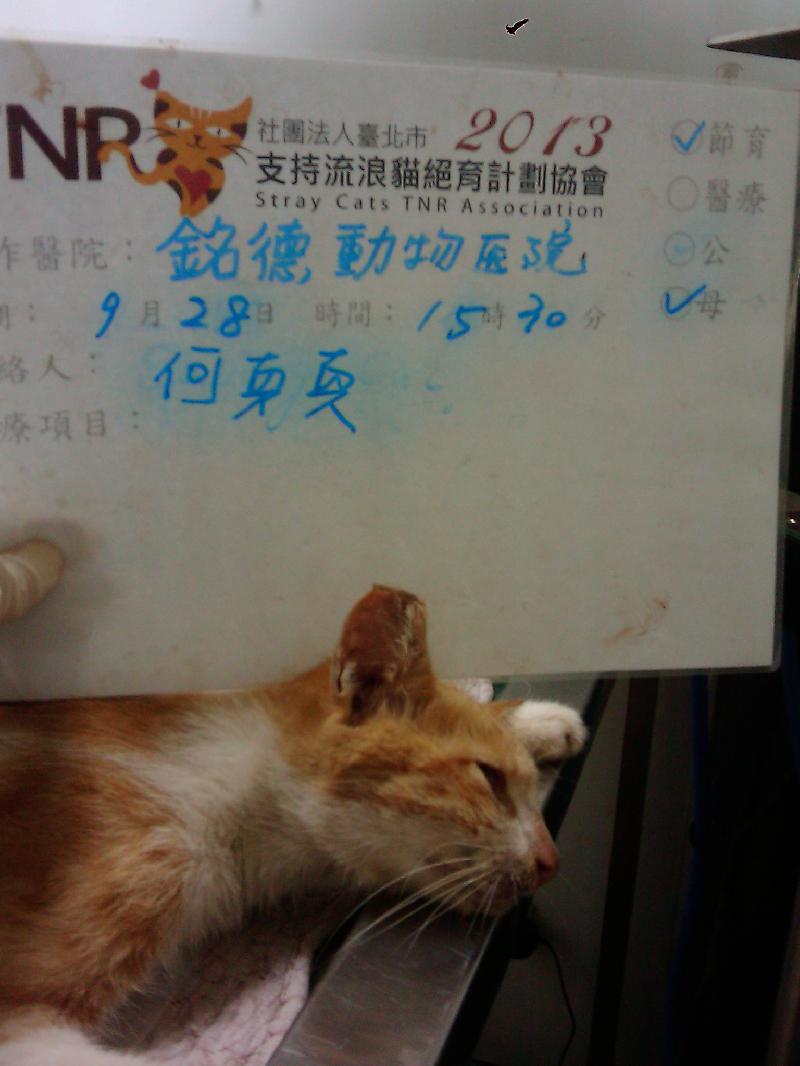 TNR 社團法人臺北市 2013
支持流浪貓絕育計劃協會
Stray Cats TNR Association
✓節育
○醫療
○公
✓母
作醫院：銘德動物医院
期： 9月28日 時間：15時30分
絡人：何
療項目：